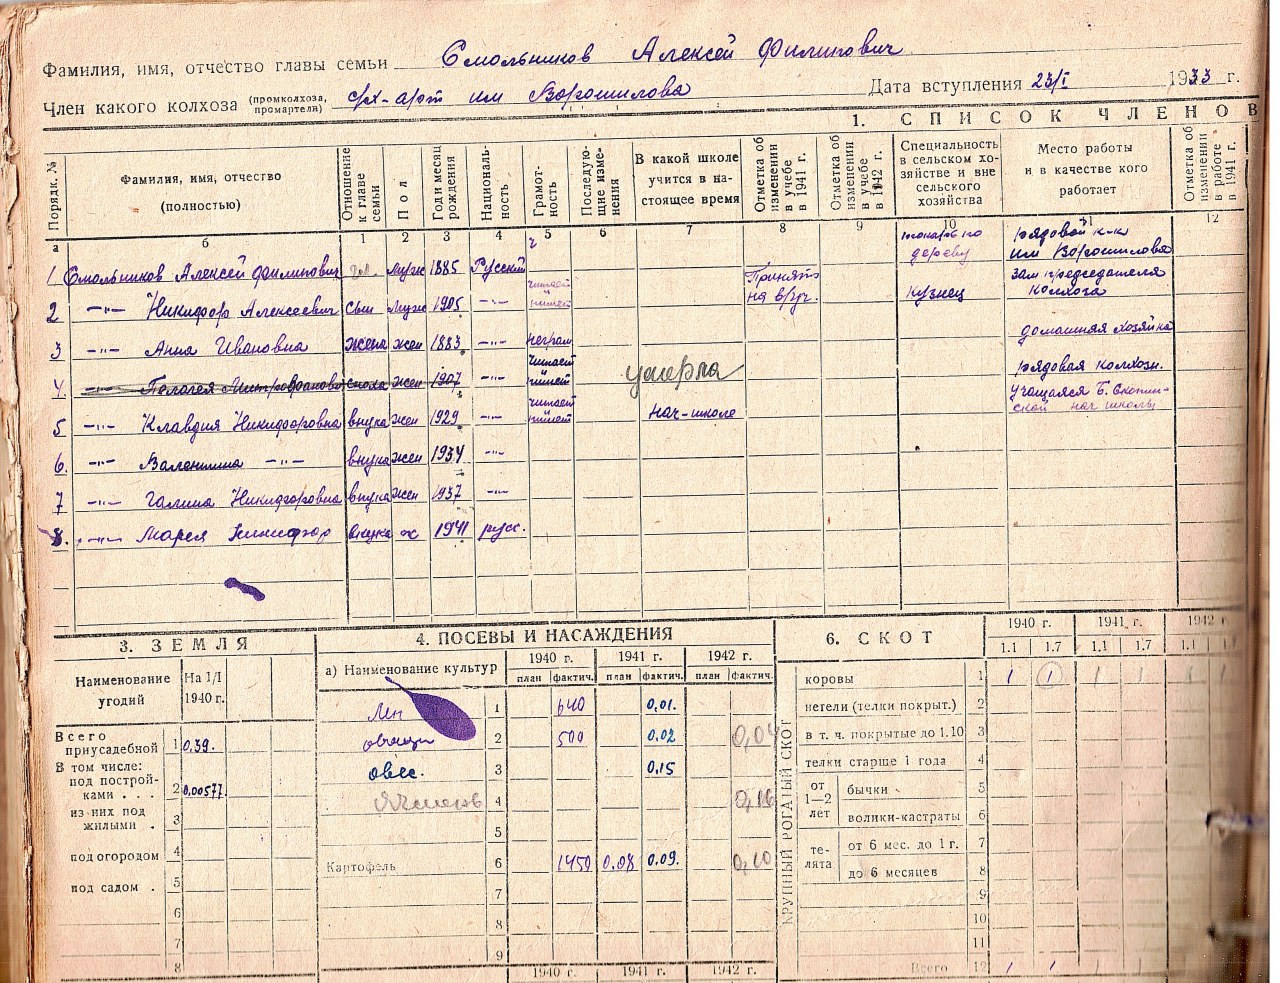 Фамилия, имя, отчество главы семьи Смольников Алексей Филипович
Член какого колхоза (промколхоза, промартели) с/х-арт им Ворошилова Дата вступления 23/I 1933 г.
1. СПИСОК ЧЛЕНОВ
Порядк. № Фамилия, имя, отчество (полностью) Отношение к главе семьи Пол Год и месяц рождения Националь-ность Грамот-ность Последую-щие изме-нения В какой школе учится в на-стоящее время Отметка об изменении в учебе в 1941 г. Отметка об изменении в учебе в 1942 г. Специальность в сельском хо-зяйстве и вне сельского хозяйства Место работы и в качестве кого работает Отметка об изменении в работе в 1941 г.
а б 1 2 3 4 5 6 7 8 9 10 11 12
1 Смольников Алексей Филипович гл. муж 1885 Русский читает и пишет токарь по дереву рядовой к-к им Ворошилова
2 —"— Никифор Алексеевич сын муж 1905 —"— Принято на в/уч. кузнец зам председателя колхоза
3 —"— Анна Ивановна жена жен 1883 —"— неграм домашняя хозяйка
4. —"— Пелагея Митрофановна сноха жен 1907 —"— читает пишет умерла рядовая колхозн.
5 —"— Клавдия Никифоровна внучка жен 1929 —"— читает пишет нач-школе учащаяся Б. нач школы
6. —"— Валентина —"— внучка жен 1934 —"—
7 —"— Галина Никифоровна внучка жен 1937 —"—
8. —"— Мария Никифор внучка ж 1941 русс.
3. ЗЕМЛЯ
Наименование угодий На 1/I 1940 г.
Всего приусадебной 1 0,39.
В том числе:
под построй-ками . . . 2 0,00577.
из них под жилыми . 3
под огородом 4
под садом . 5
6
7
8
4. ПОСЕВЫ И НАСАЖДЕНИЯ
а) Наименование культур 1940 г. 1941 г. 1942 г.
план фактич. план фактич. план фактич.
Лен 1 640 0,01.
овощи 2 500 0,02 0,04
овес. 3 0,15
Ячмень 4 0,16
5
Картофель 6 1450 0,08 0,09. 0,10
7
8
9
1940 г. 1941 г. 1942 г.
6. СКОТ
1940 г. 1941 г. 1942 г
1.1 1.7 1.1 1.7 1.1 1.
КРУПНЫЙ РОГАТЫЙ СКОТ
коровы 1 1 1 1 1 1 1
нетели (телки покрыт.) 2
в т. ч. покрытые до 1.10 3
телки старше 1 года 4
от 1—2 лет бычки 5
волики-кастраты 6
те-лята от 6 мес. до 1 г. 7
до 6 месяцев 8
9
10
11
Всего 12 1 1